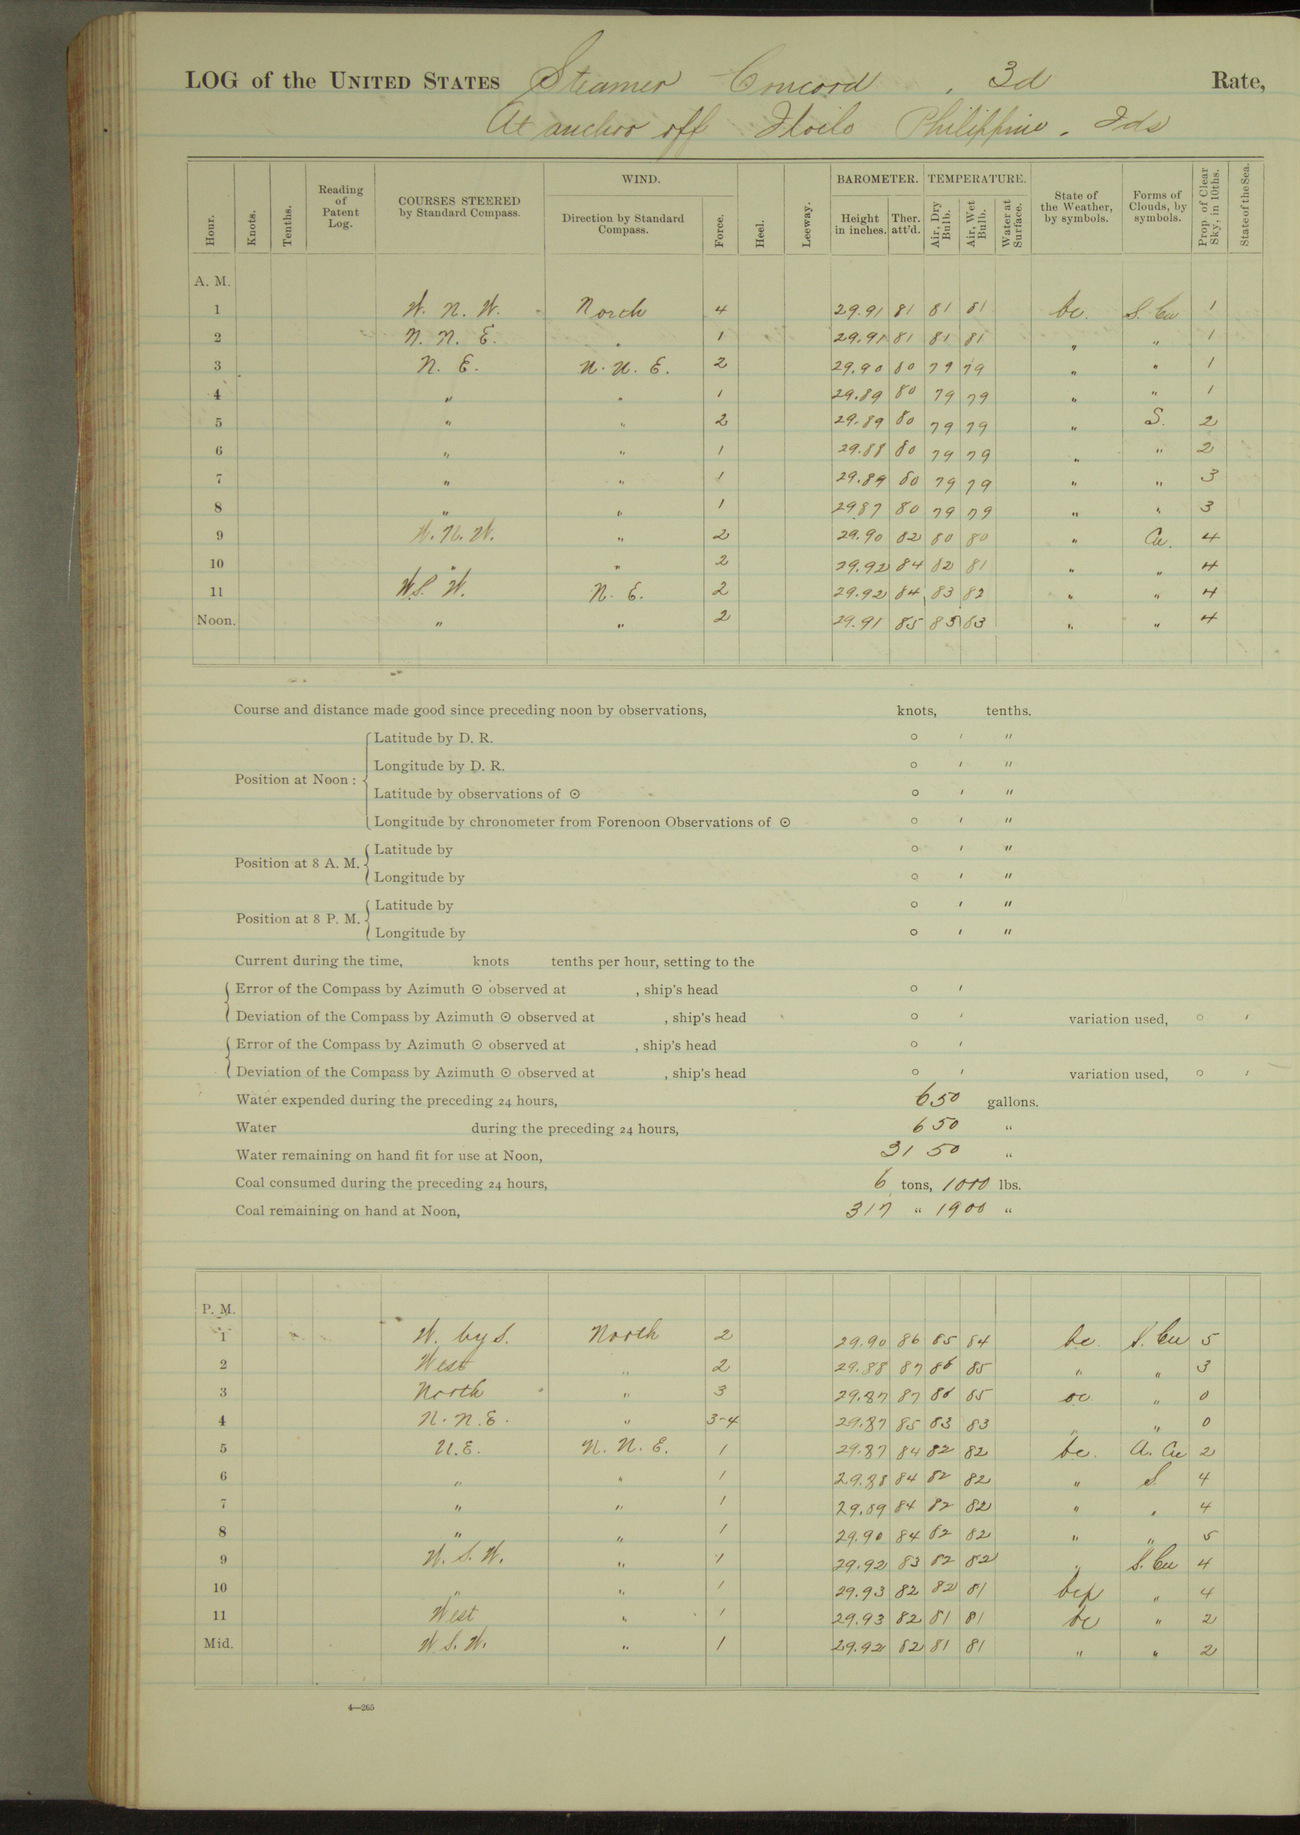 LOG of the UNITED STATES Steamer Concord, 3d Rate,
At anchor off Iloilo Philippine. Ids
Hour. Knots. Tenths. Reading of Patent Log. COURSES STEERED by Standard Compass. WIND. Direction by Standard Compass. Force. Heel. Leeway. BAROMETER. Height in inches. Ther. att'd. TEMPERATURE. Air, Dry Bulb. Air, Wet Bulb. Water at Surface. State of the Weather, by symbols. Forms of Clouds, by symbols. Prop. of Clear Sky, in 10ths. State of the Sea.
A. M.
1 W. N. W. North 4 29.91 81 81 81 bc. S. Cu 1
2 N. N. E. " 1 29.91 81 81 81 " " 1
3 N. E. N. N. E. 2 29.90 80 79 79 " " 1
4 " " 1 29.89 80 79 79 " " 1
5 " " 2 29.89 80 79 79 " S. 2
6 " " 1 29.88 80 79 79 " " 2
7 " " 1 29.89 80 79 79 " " 3
8 " " 1 29.87 80 79 79 " " 3
9 W. N. W. " 2 29.90 82 80 80 " Cu. 4
10 " " 2 29.92 84 82 81 " " 4
11 W.S. W. N. E. 2 29.92 84 83 82 " " 4
Noon. " " 2 29.91 85 83 83 " " 4
Course and distance made good since preceding noon by observations, knots, tenths.
Latitude by D. R. ° ′ ″
Longitude by D. R. ° ′ ″
Position at Noon:
Latitude by observations of ☉ ° ′ ″
Longitude by chronometer from Forenoon Observations of ☉ ° ′ ″
Latitude by ° ′ ″
Position at 8 A. M.
Longitude by ° ′ ″
Latitude by ° ′ ″
Position at 8 P. M.
Longitude by ° ′ ″
Current during the time, knots tenths per hour, setting to the
Error of the Compass by Azimuth ☉ observed at , ship's head ° ′
Deviation of the Compass by Azimuth ☉ observed at , ship's head ° ′ variation used, ° ′
Error of the Compass by Azimuth ☉ observed at , ship's head ° ′
Deviation of the Compass by Azimuth ☉ observed at , ship's head ° ′ variation used, ° ′
Water expended during the preceding 24 hours, 650 gallons.
Water during the preceding 24 hours, 650 "
Water remaining on hand fit for use at Noon, 3150 "
Coal consumed during the preceding 24 hours, 6 tons, 1000 lbs.
Coal remaining on hand at Noon, 317 " 1900 "
P. M.
1 W. by S. North 2 29.90 86 85 84 bc. S. Cu 5
2 West " 2 29.88 87 86 85 " " 3
3 North " 3 29.87 87 86 85 oc " 0
4 N. N. E. " 3-4 29.87 85 83 83 " " 0
5 N.E. N. N. E. 1 29.87 84 82 82 bc. A. Cu 2
6 " " 1 29.88 84 82 82 " S 4
7 " " 1 29.89 84 82 82 " " 4
8 " " 1 29.90 84 82 82 " " 5
9 W. S. W. " 1 29.92 83 82 82 " S. Cu 4
10 " " 1 29.93 82 82 81 bcp " 4
11 West " 1 29.93 82 81 81 bc " 2
Mid. W.S.W. " 1 29.92 82 81 81 " " 2
4—265